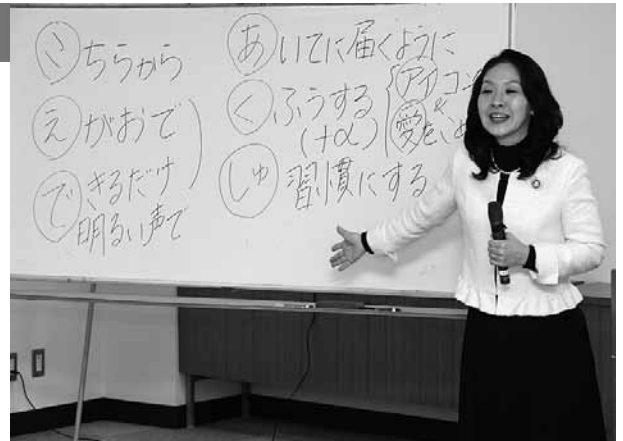 こちらから
えがおで
できるだけ
明るい声で
あいてに届くように
くふうする
(+α)
アイコン
&
愛を
しゅ習慣にする